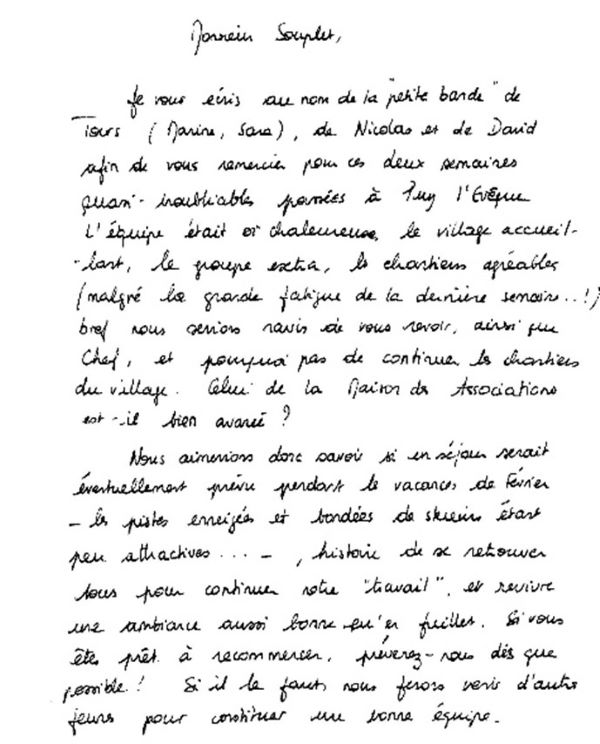 Monsieur Souplet,
Je vous écris au nom de la "petite bande" de
Tours (Marine, Sara), de Nicolas et de David
afin de vous remercier pour ces deux semaines
quasi-inoubliables passées à Puy l'Evêque
L'équipe était si chaleureuse, le village accueil-
-lant, le groupe extra, les chantiers agréables
(malgré la grande fatigue de la dernière semaine..!)
bref nous serions ravis de vous revoir, ainsi que
Chef, et pourquoi pas de continuer les chantiers
du village. Celui de la Maison des Associations
est-il bien avancé ?
Nous aimerions donc savoir si un séjour serait
éventuellement prévu pendant les vacances de Février
- les pistes enneigées et bondées de skieurs étant
peu attractives... - , histoire de se retrouver
tous pour continuer notre "travail", et revivre
une ambiance aussi bonne qu'en juillet. Si vous
êtes prêt à recommencer, prévenez-nous dès que
possible ! Si il le faut, nous ferons venir d'autres
jeunes pour constituer une bonne équipe.